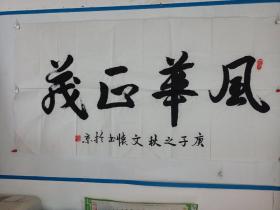 風華正茂
庚子之秋文懷書於京